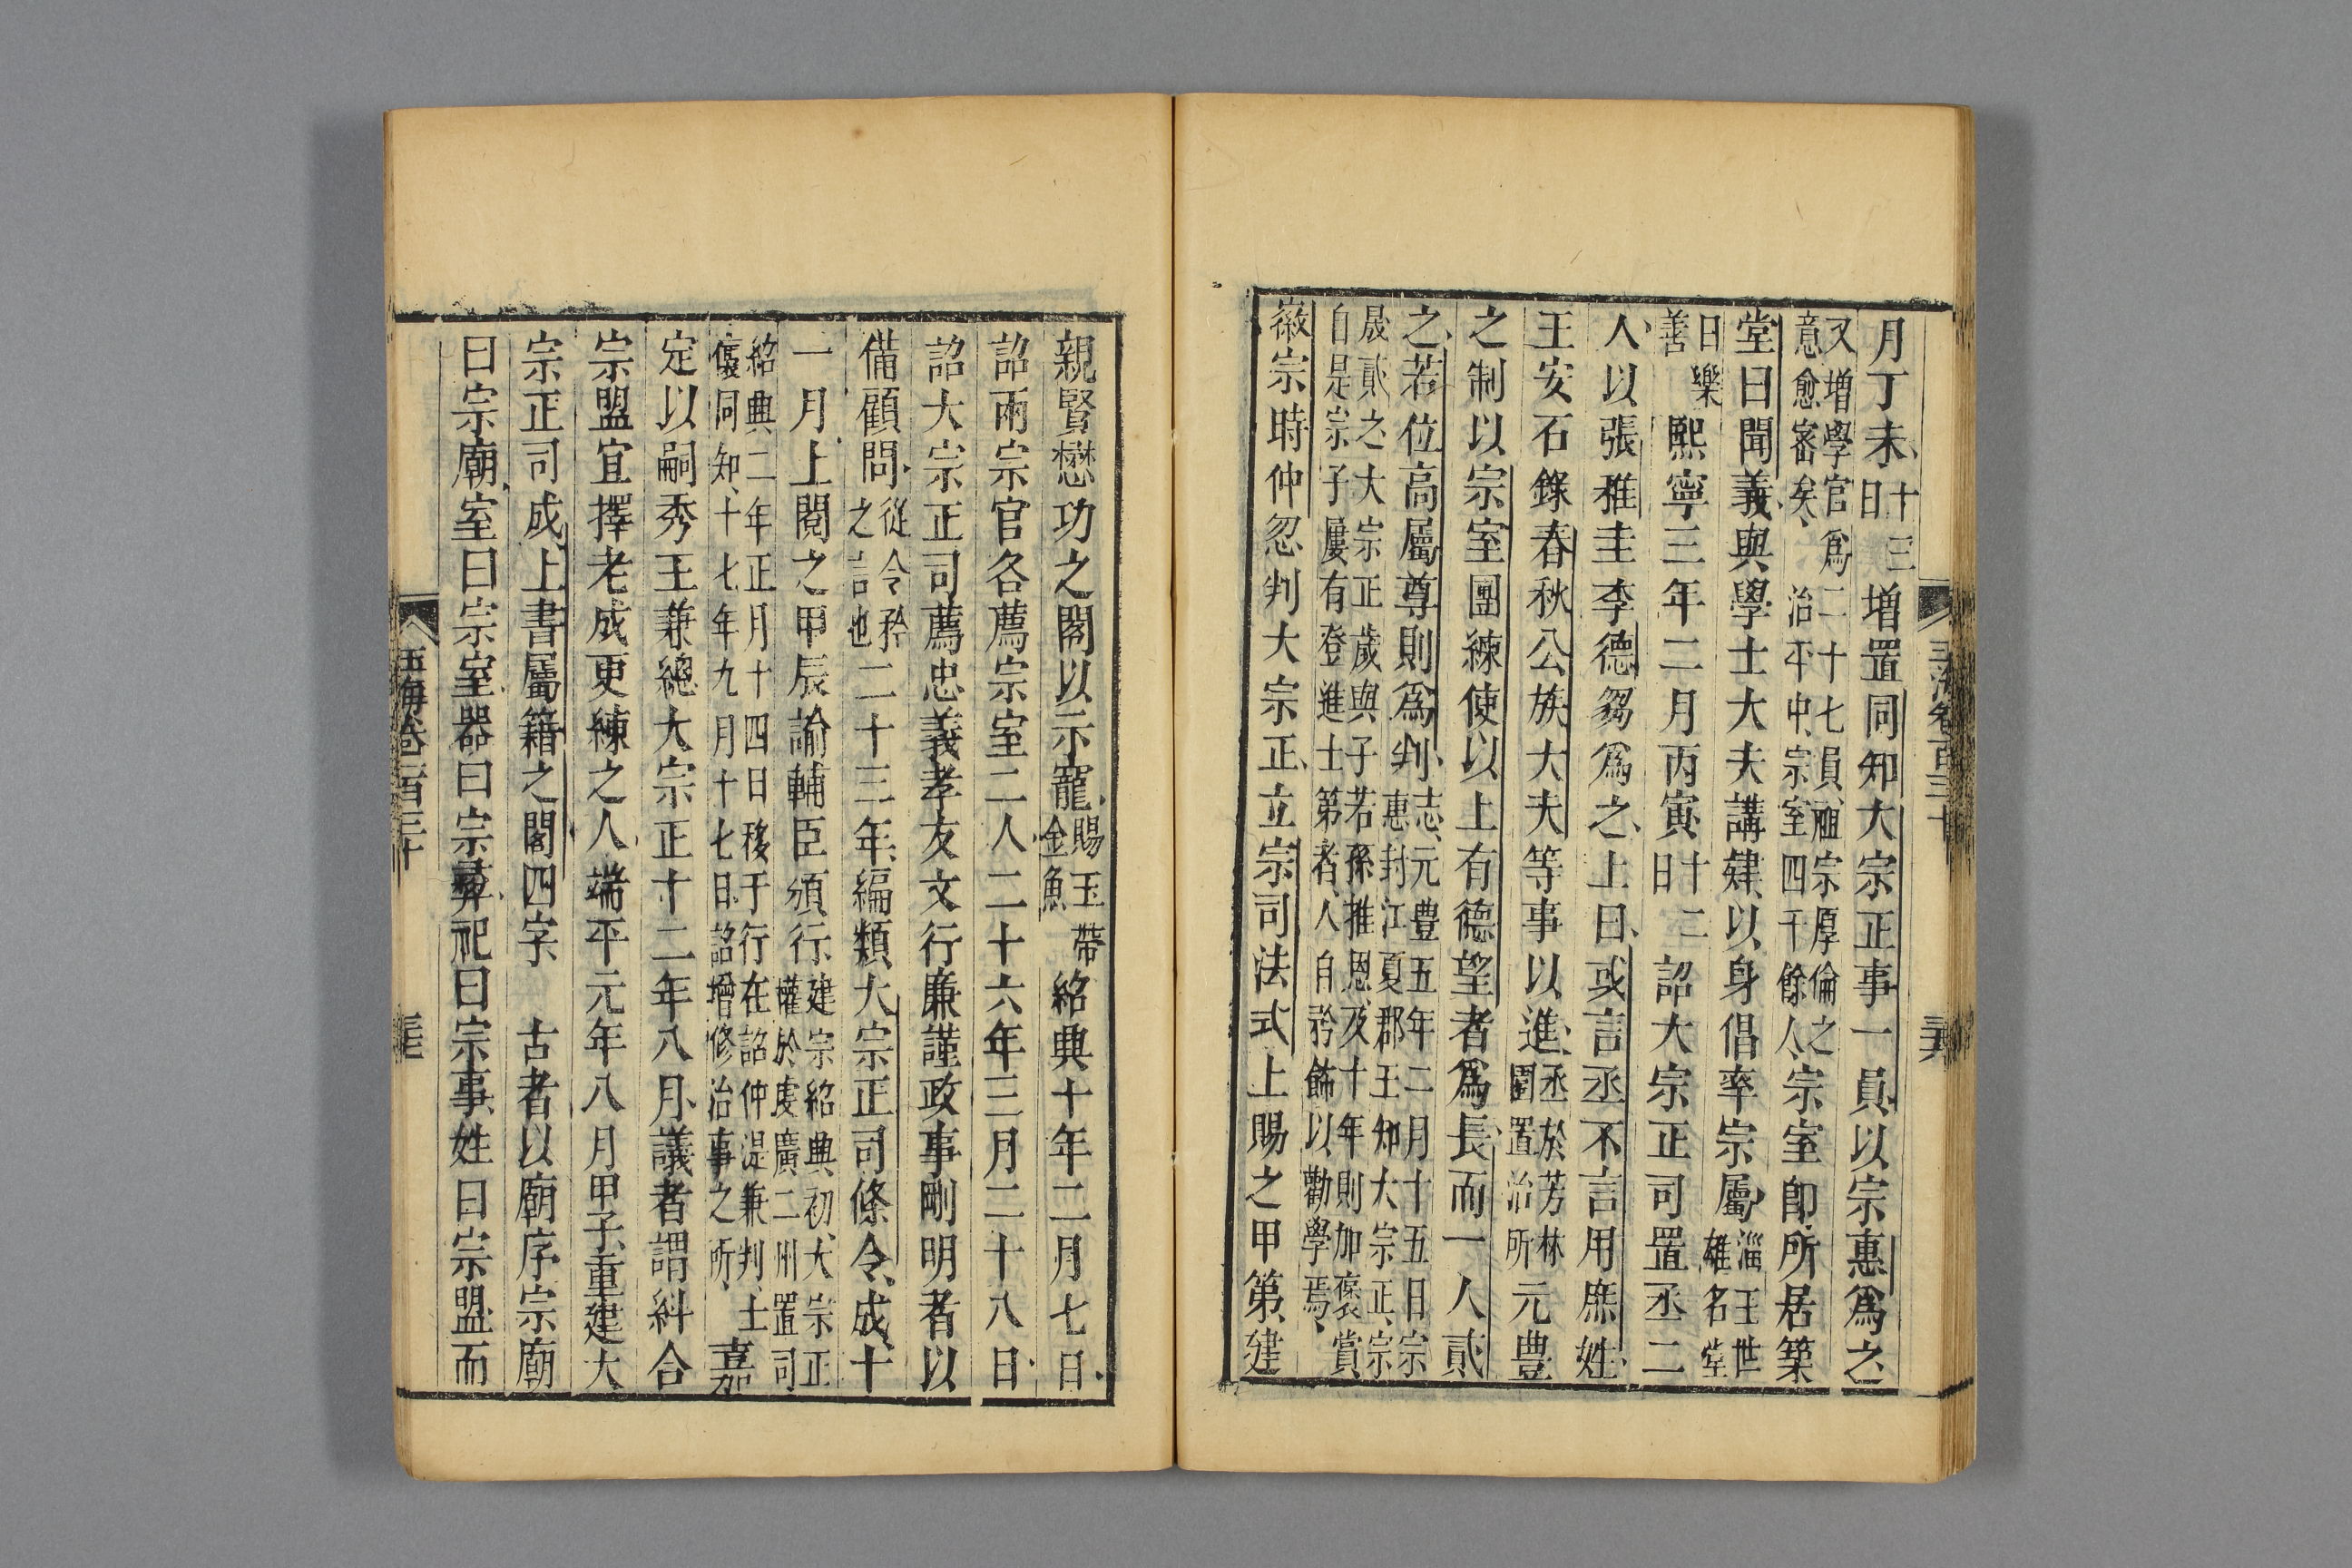 月丁未十三日增置同知大宗正事一員以宗惠爲之
又增學官爲二十七員祖宗厚倫之意愈密矣治平中宗室四千餘人宗室卽所居築
堂曰聞義與學士大夫講肄以身倡率宗屬淄王世雄名堂
曰樂善熙寧三年二月丙寅十二日詔大宗正司置丞二
人以張稚圭李德芻爲之上曰或言丞不言用庶姓
王安石錄春秋公族大夫等事以進丞於芳林園置治所元豊
之制以宗室團練使以上有德望者爲長而一人貳
之若位高屬尊則爲判志元豊五年二月十五日宗惠封江夏郡王知大宗正宗
晟貳之大宗正歲與子若孫推恩及十年則加褒賞自是宗子屢有登進士第者人自矜飾以勸學焉
徽宗時仲忽判大宗正立宗司法式上賜之甲第建
玉海卷一百三十
親賢懋功之閣以示寵賜玉帶金魚紹興十年二月七日
詔兩宗官各薦宗室二人二十六年三月二十八日
詔大宗正司薦忠義孝友文行廉謹政事剛明者以
備顧問從令矜之言也二十三年編類大宗正司條令成十
一月上閱之甲辰諭輔臣頒行建宗紹興初大宗正權於虔廣二州置司
紹興二年正月十四日移于行在詔仲湜兼判士㒟同知十七年九月十七日詔增修治事之所嘉
定以嗣秀王兼總大宗正十二年八月議者謂糾合
宗盟宜擇老成更練之人端平元年八月甲子重建大
宗正司成上書屬籍之閣四字 古者以廟序宗廟
曰宗廟室曰宗室器曰宗彝祀曰宗事姓曰宗盟而
玉海卷一百三十